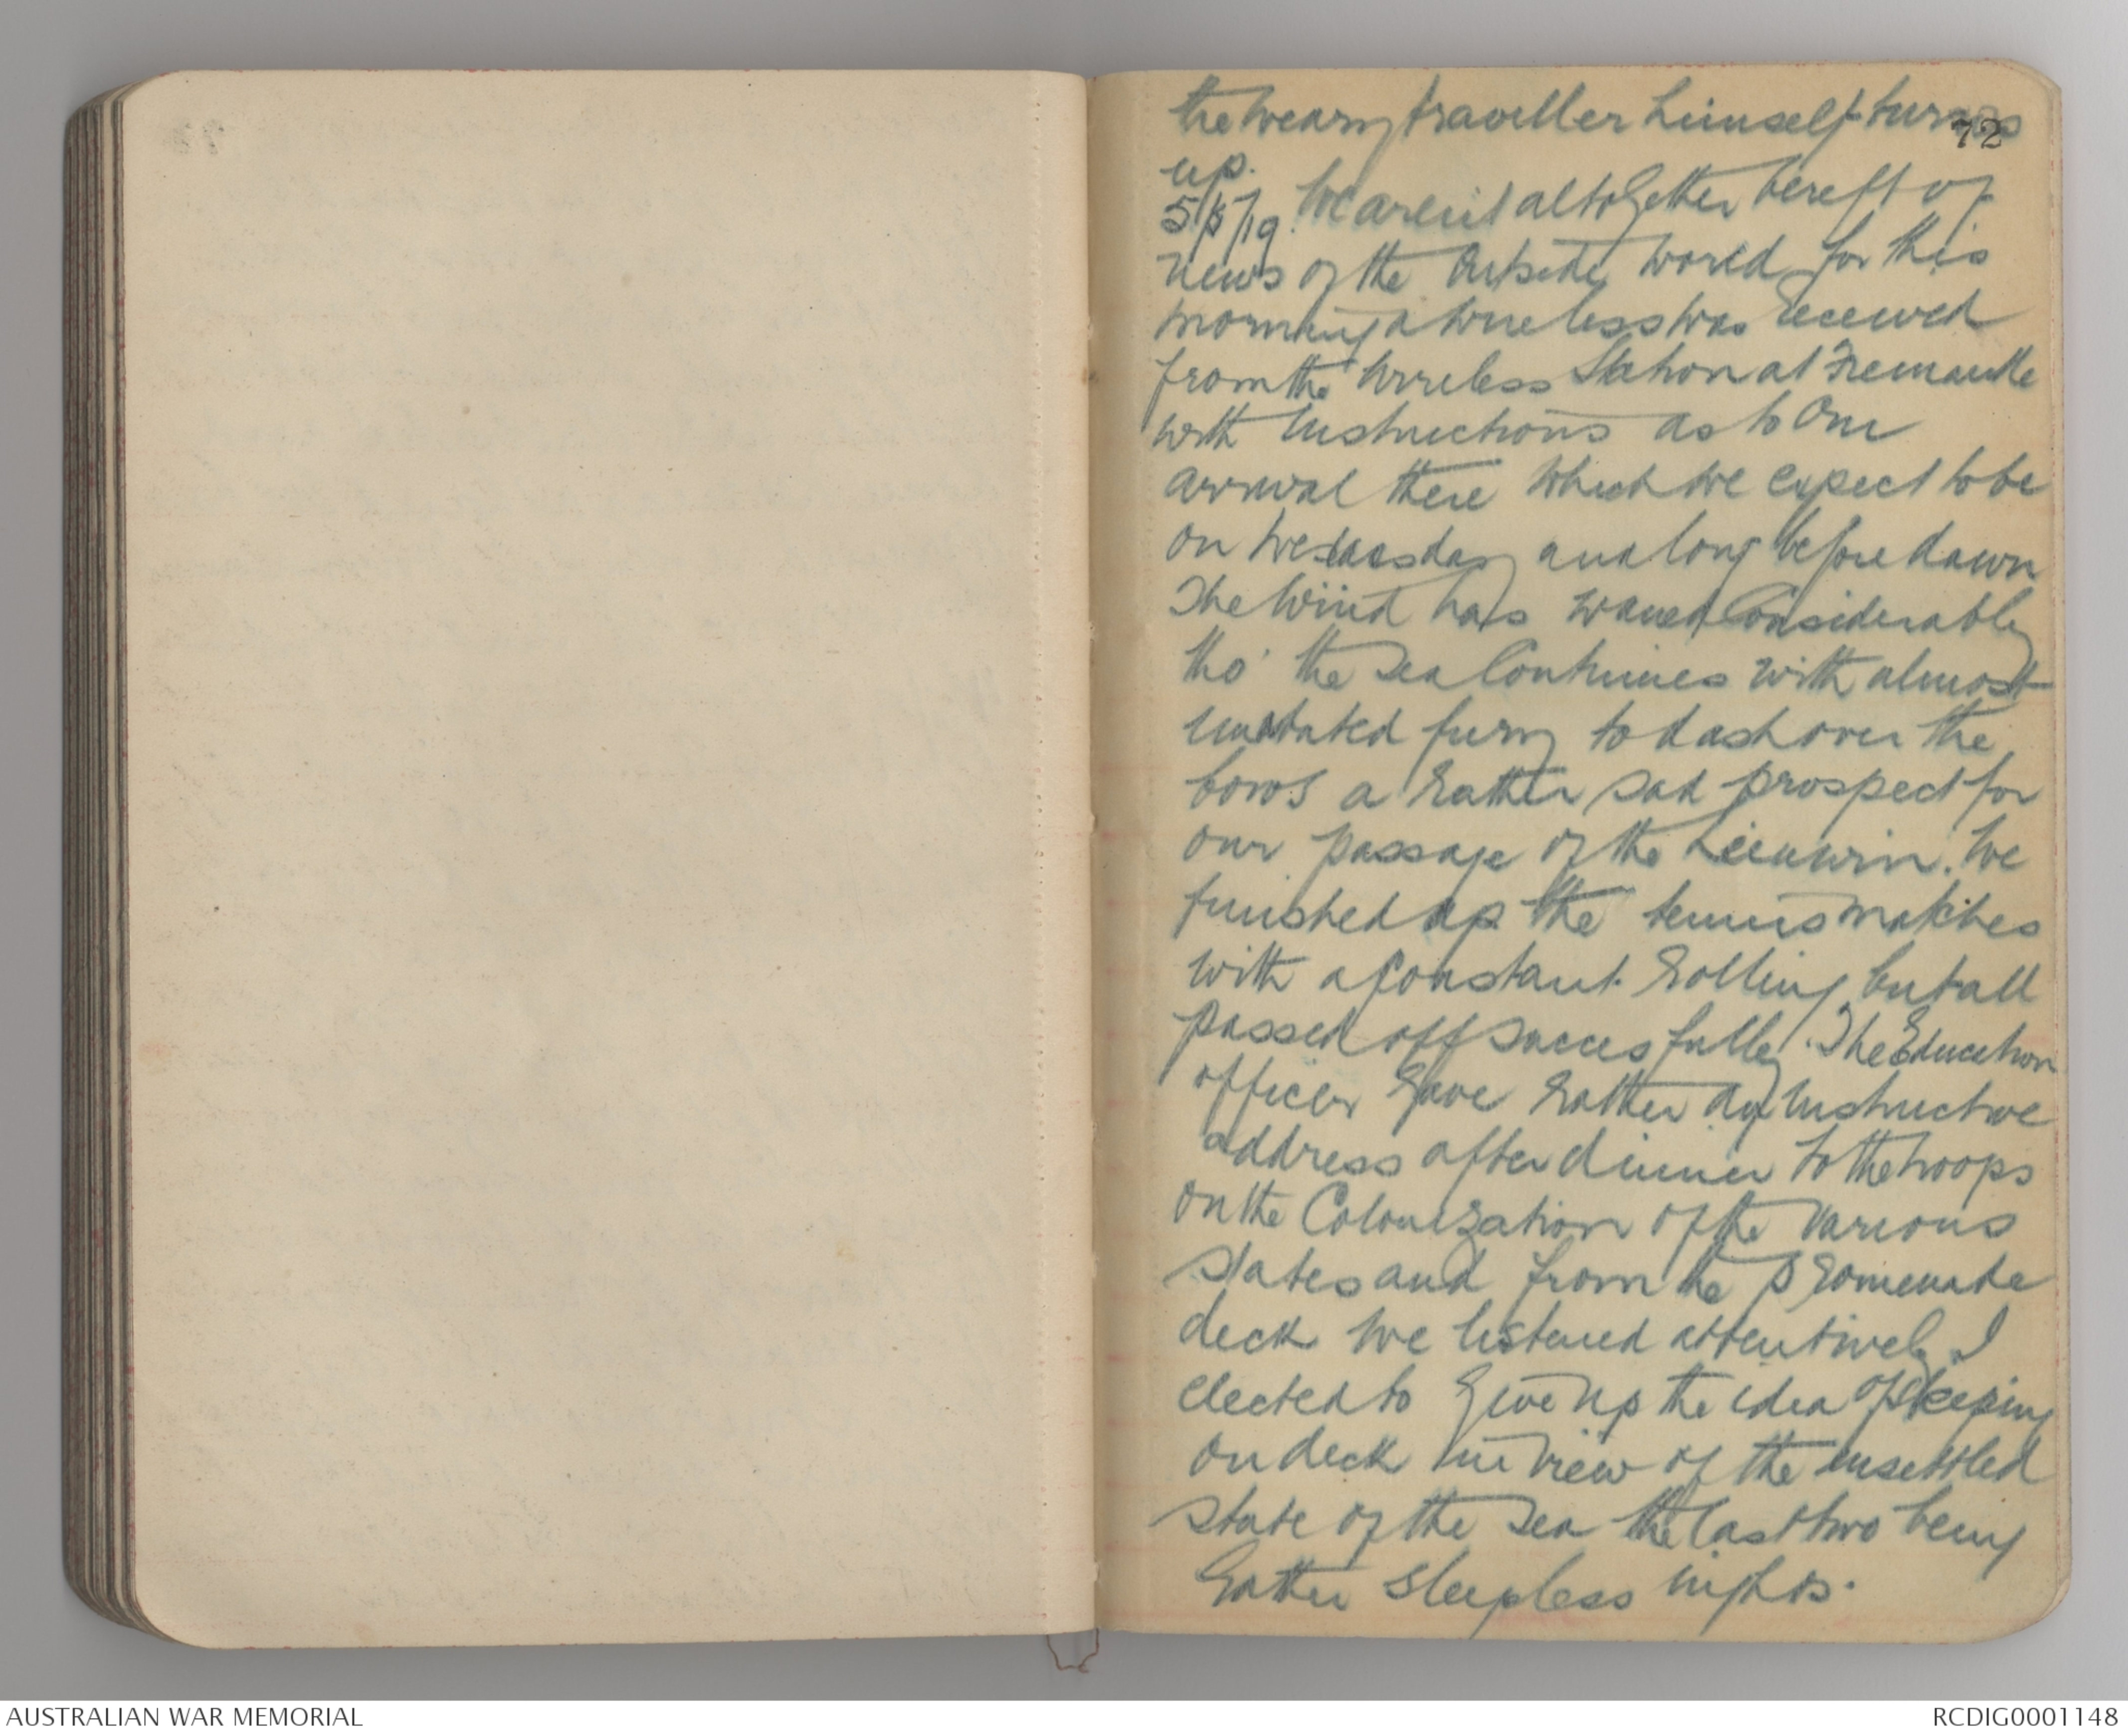 72
the weary traveller himself turns
up.
5/5/19. We aren't altogether bereft of
news of the Outside world for this
morning a wireless was received
from the Wireless Station at Fremantle
with instructions as to Our
arrival there which we expect to be
on Wednesday and long before dawn
The Wind has waned Considerably
tho' the Sea Continues with almost
unabated fury to dash over the
bows a rather sad prospect for
our passage of the Leeuwin. We
finished up the tennis matches
with a constant rolling but all
passed off succesfully. The Education
officer gave rather an instructive
address after dinner to the troops
on the Colonization of the various
states and from the Promenade
deck we listened attentively I
elected to give up the idea of sleeping
on deck in view of the unsettled
state of the Sea the last two being
rather sleepless nights.
AUSTRALIAN WAR MEMORIAL
RCDIG0001148